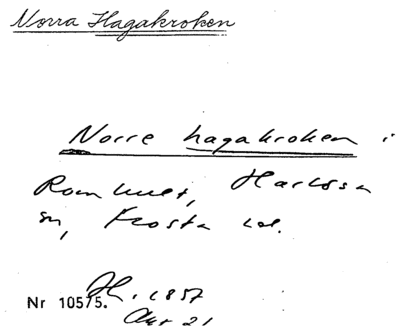 Norra Hagakroken
Norre hagakroken i
Romhult, Harlösa
sn, Frosta hd.
H. 1857
Nr 10575.
Akt 21